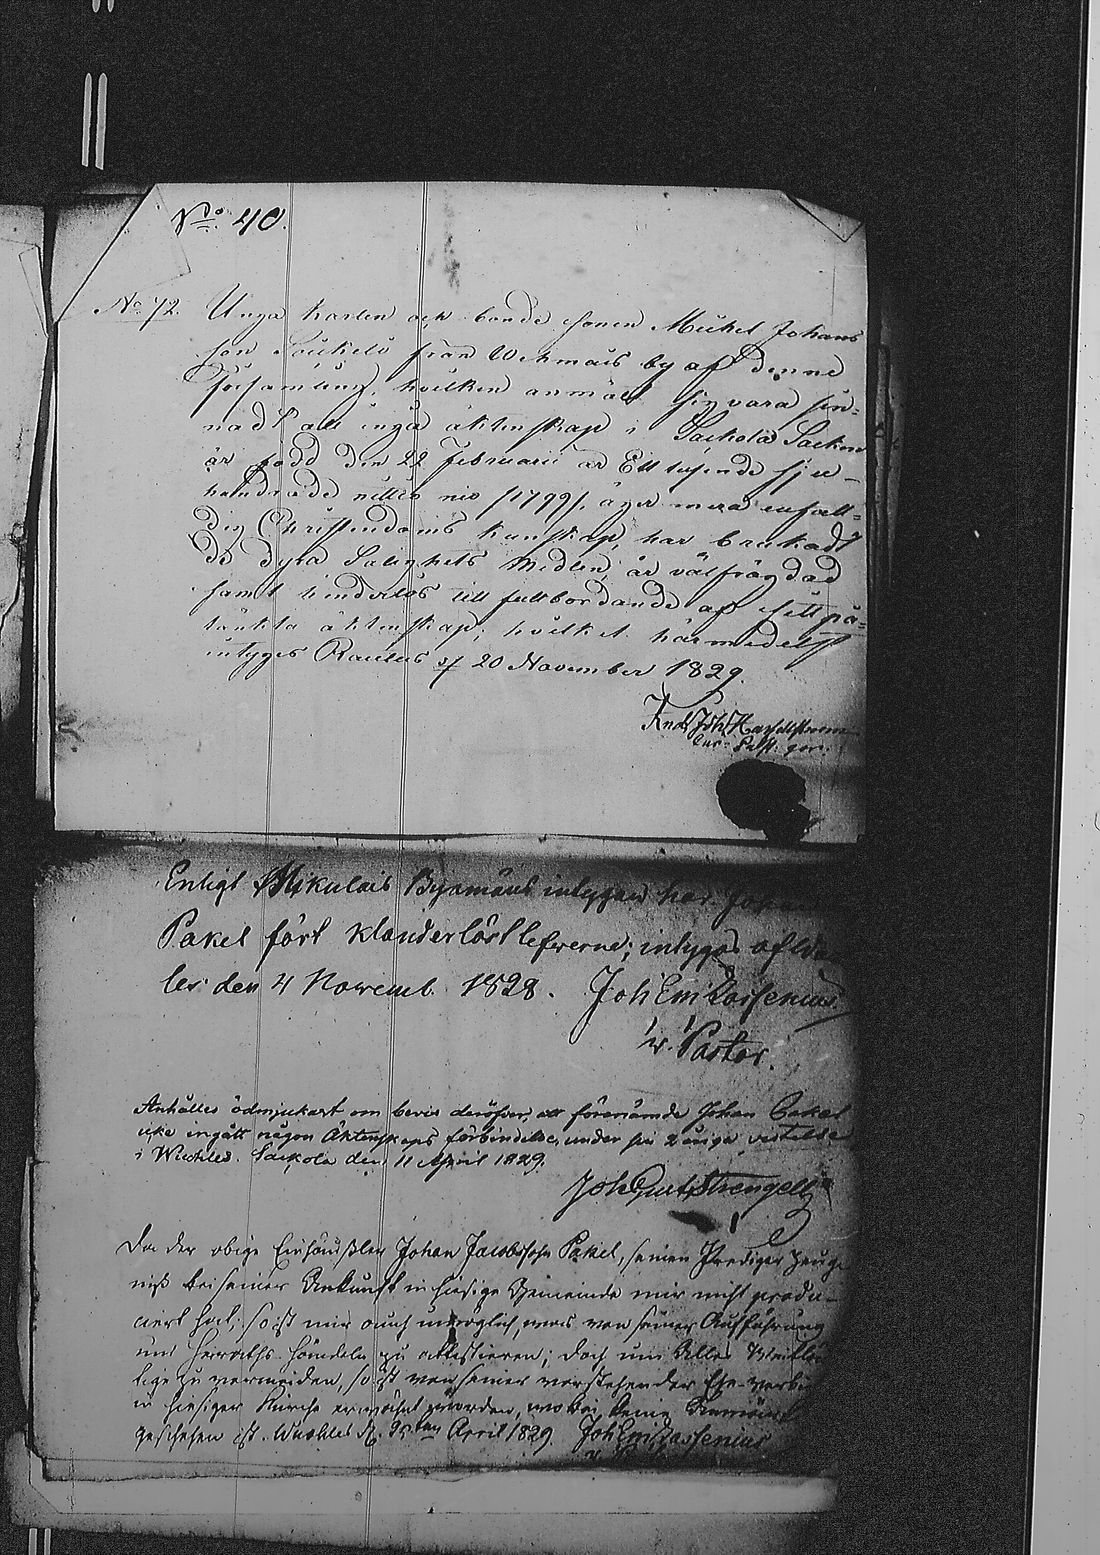 No. 40.
No 72. Unga karlen och bonde sonen Mickel Johans
son Soukelo från Wehmais by af denne
församling, hvilken anmält sig vara sin-
nadt att ingå äktenskap i Säckola Socken
är född den 22 Februarii år Ett tusende sju-
hundrade nittio nio /1799/, äger mera enfall-
dig Christendoms kunskap, har brukadt
de dyra Salighets Medlen, är välfrägdad
samt hinderlös till fullbordande af sitt på-
tänkta äktenskap; hvilket härmedelst
intygas Rautus d 20 November 1829.
Joh
Enligt Nikulais Byamäns intygan har Johan
Pakel fört klanderlöst lefverne; intygas af
les den 4 Novemb. 1828. Joh Em Rossenius
v. Pastor.
Anhålles ödmjukast om bevis deröfver, att förenämde Johan Pakel
icke ingått någon Äktenskaps förbindelse under sin 2 åriga vistelse
i Wuohles. Säckola den 11 April 1829.
Joh Gust Strengell
Da der obige Einhäußler Johan Jacobssohn Pakel, seinen Prediger Zeug-
niß bei seiner Ankunft in hiesige Gemeinde mir nicht produ-
ciert hat, so ist mir auch unmöglich, was von seiner Aufführung
und Heiraths-Händeln zu attestieren; doch um Alles
zu vermeiden, so ist von seiner vorstehender Ehe-verbin
in hiesiger Kirche erwähnt worden, wobei keine
geschehen ist. Wuohles d. 25ten April 1829. Joh Em Rossenius